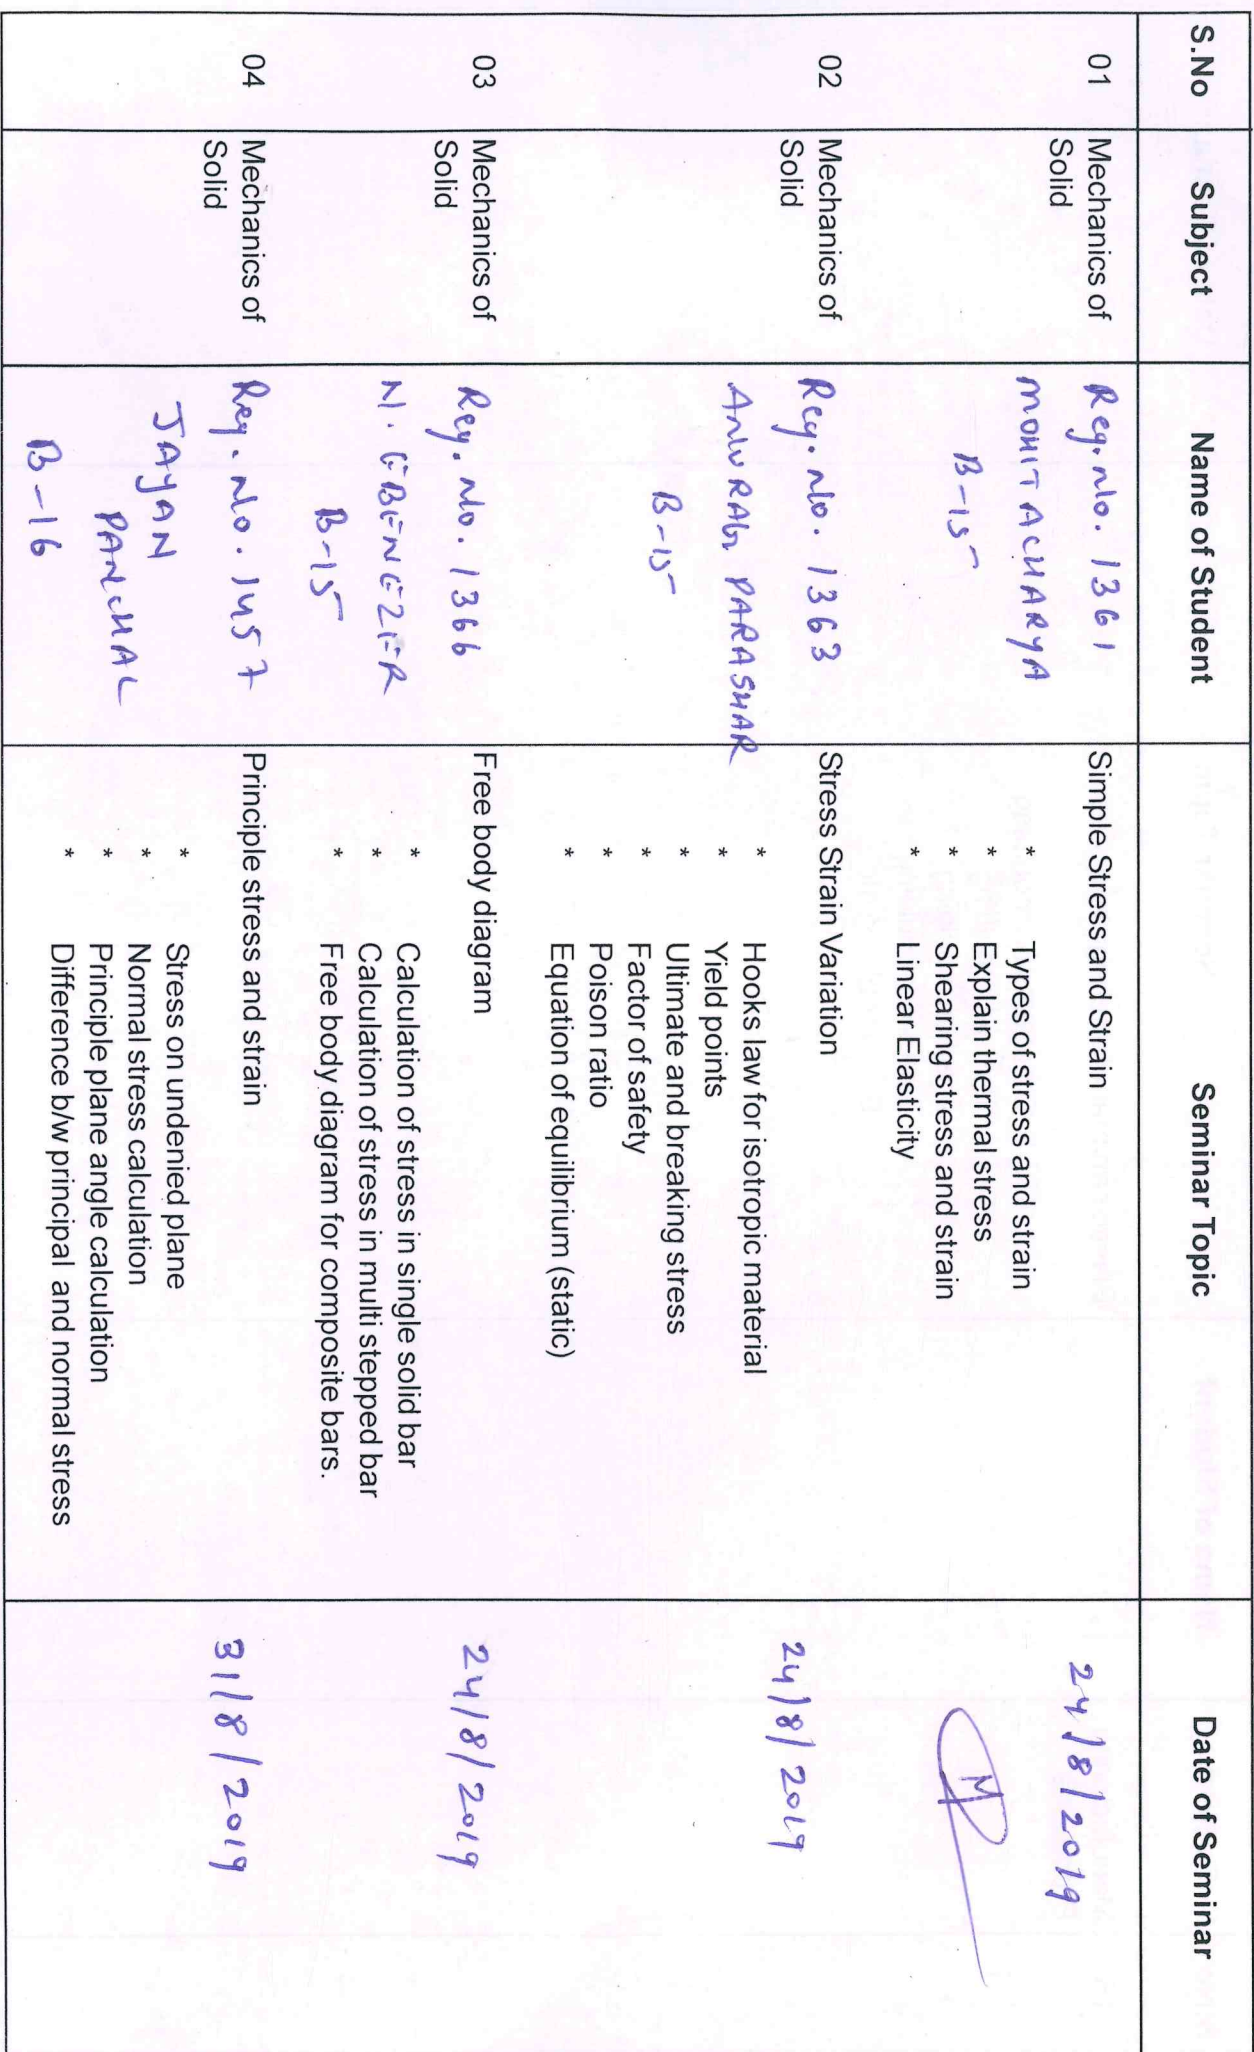 S.No Subject Name of Student Seminar Topic Date of Seminar
01 Mechanics of Solid
Reg.No. 1361
MOHIT ACHARYA
B-15
Simple Stress and Strain
* Types of stress and strain
* Explain thermal stress
* Shearing stress and strain
* Linear Elasticity
24/8/2019
02 Mechanics of Solid
Reg. No. 1363
ANURAG PARASHAR
B-15
Stress Strain Variation
* Hooks law for isotropic material
* Yield points
* Ultimate and breaking stress
* Factor of safety
* Poison ratio
* Equation of equilibrium (static)
24/8/2019
03 Mechanics of Solid
Reg. No. 1366
N. EBENEZER
B-15
Free body diagram
* Calculation of stress in single solid bar
* Calculation of stress in multi stepped bar
* Free body diagram for composite bars.
24/8/2019
04 Mechanics of Solid
Reg. No. 1457
JAYAN
PANCHAL
B-16
Principle stress and strain
* Stress on undenied plane
* Normal stress calculation
* Principle plane angle calculation
* Difference b/w principal and normal stress
31/8/2019